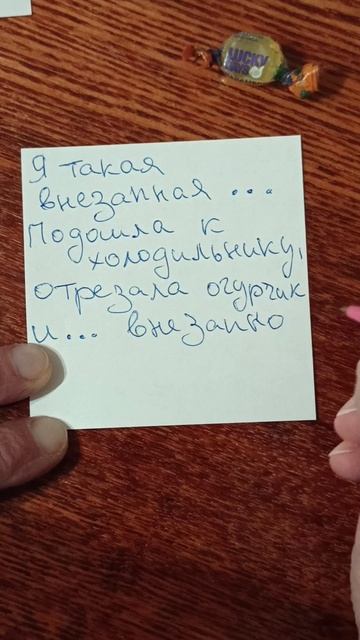 LUCKY
Я такая
внезапная ...
Подошла к
холодильнику,
отрезала огурчик
и... внезапно